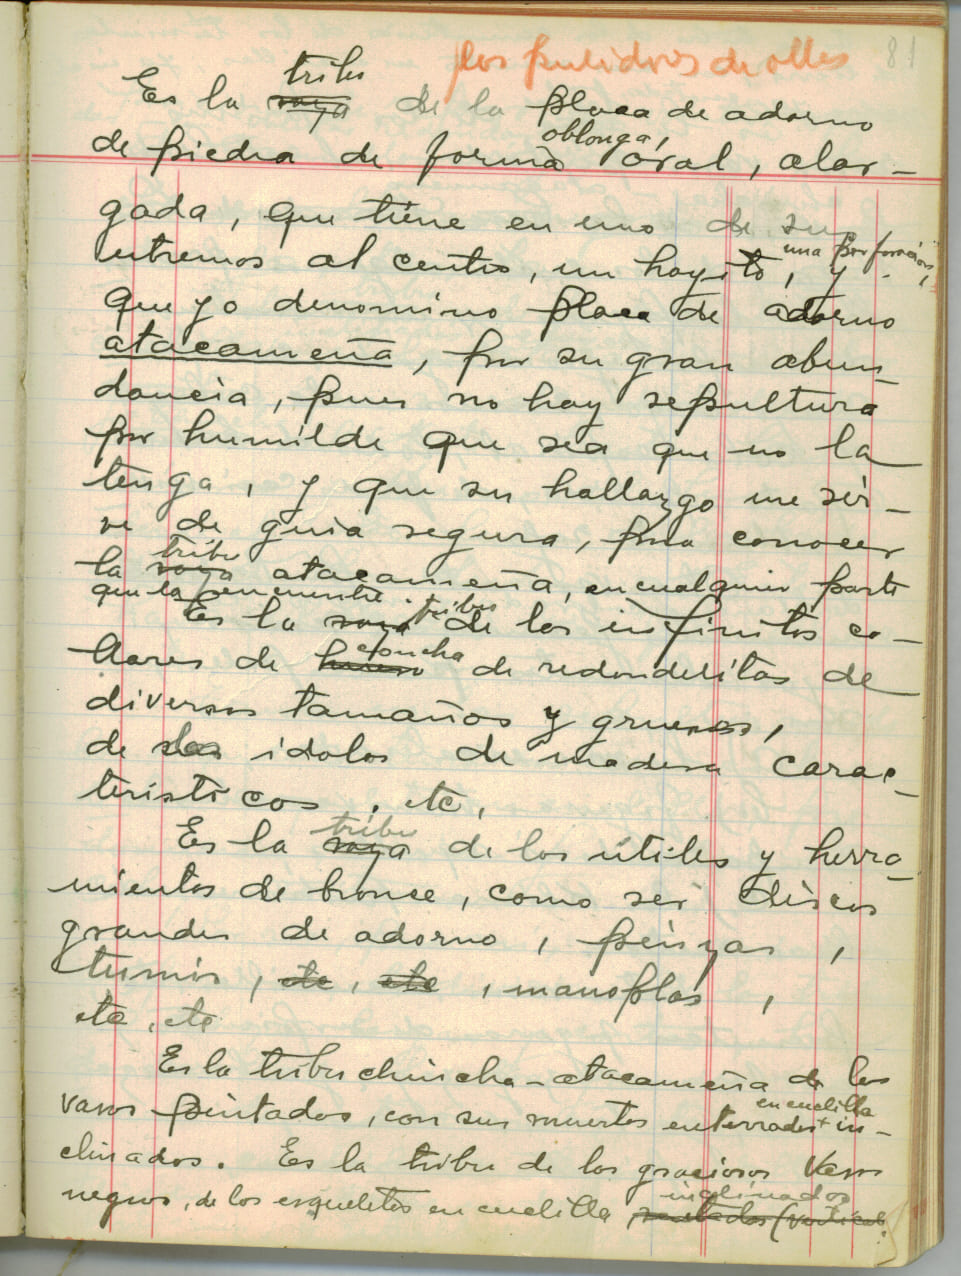 los pulidores de olles 81
tribu
Es la raza de la placa de adorno
oblonga,
de piedra de forma oval, alar-
gada, que tiene en uno de sus
una perforación,
extremos al centro, un hoyito, y
que yo denomino placa de adorno
atacameña, por su gran abun-
dancia, pues no hay sepultura
por humilde que sea que no la
tenga, y que su hallazgo me sir-
ve de guía segura, para conocer
tribu
la raza atacameña, en cualquier parte
que la encuentre.
tribu
Es la raza de los infinitos co-
concha
llares de hueso de redondelitas de
diversos tamaños y gruesos,
de los idolos de madera carac-
terísticos, etc,
tribu
Es la raza de los útiles y herra-
mientas de bronce, como ser discos
grandes de adorno, pinzas,
tumis, etc, etc, manoplas,
etc, etc
Es la tribu chincha-atacameña de los
en cuclilla
vasos pintados, con sus muertos enterrados + in-
clinados. Es la tribu de los graciosos vasos
inclinados
negros, de los esqueletos en cuclilla, sentados (vertical.